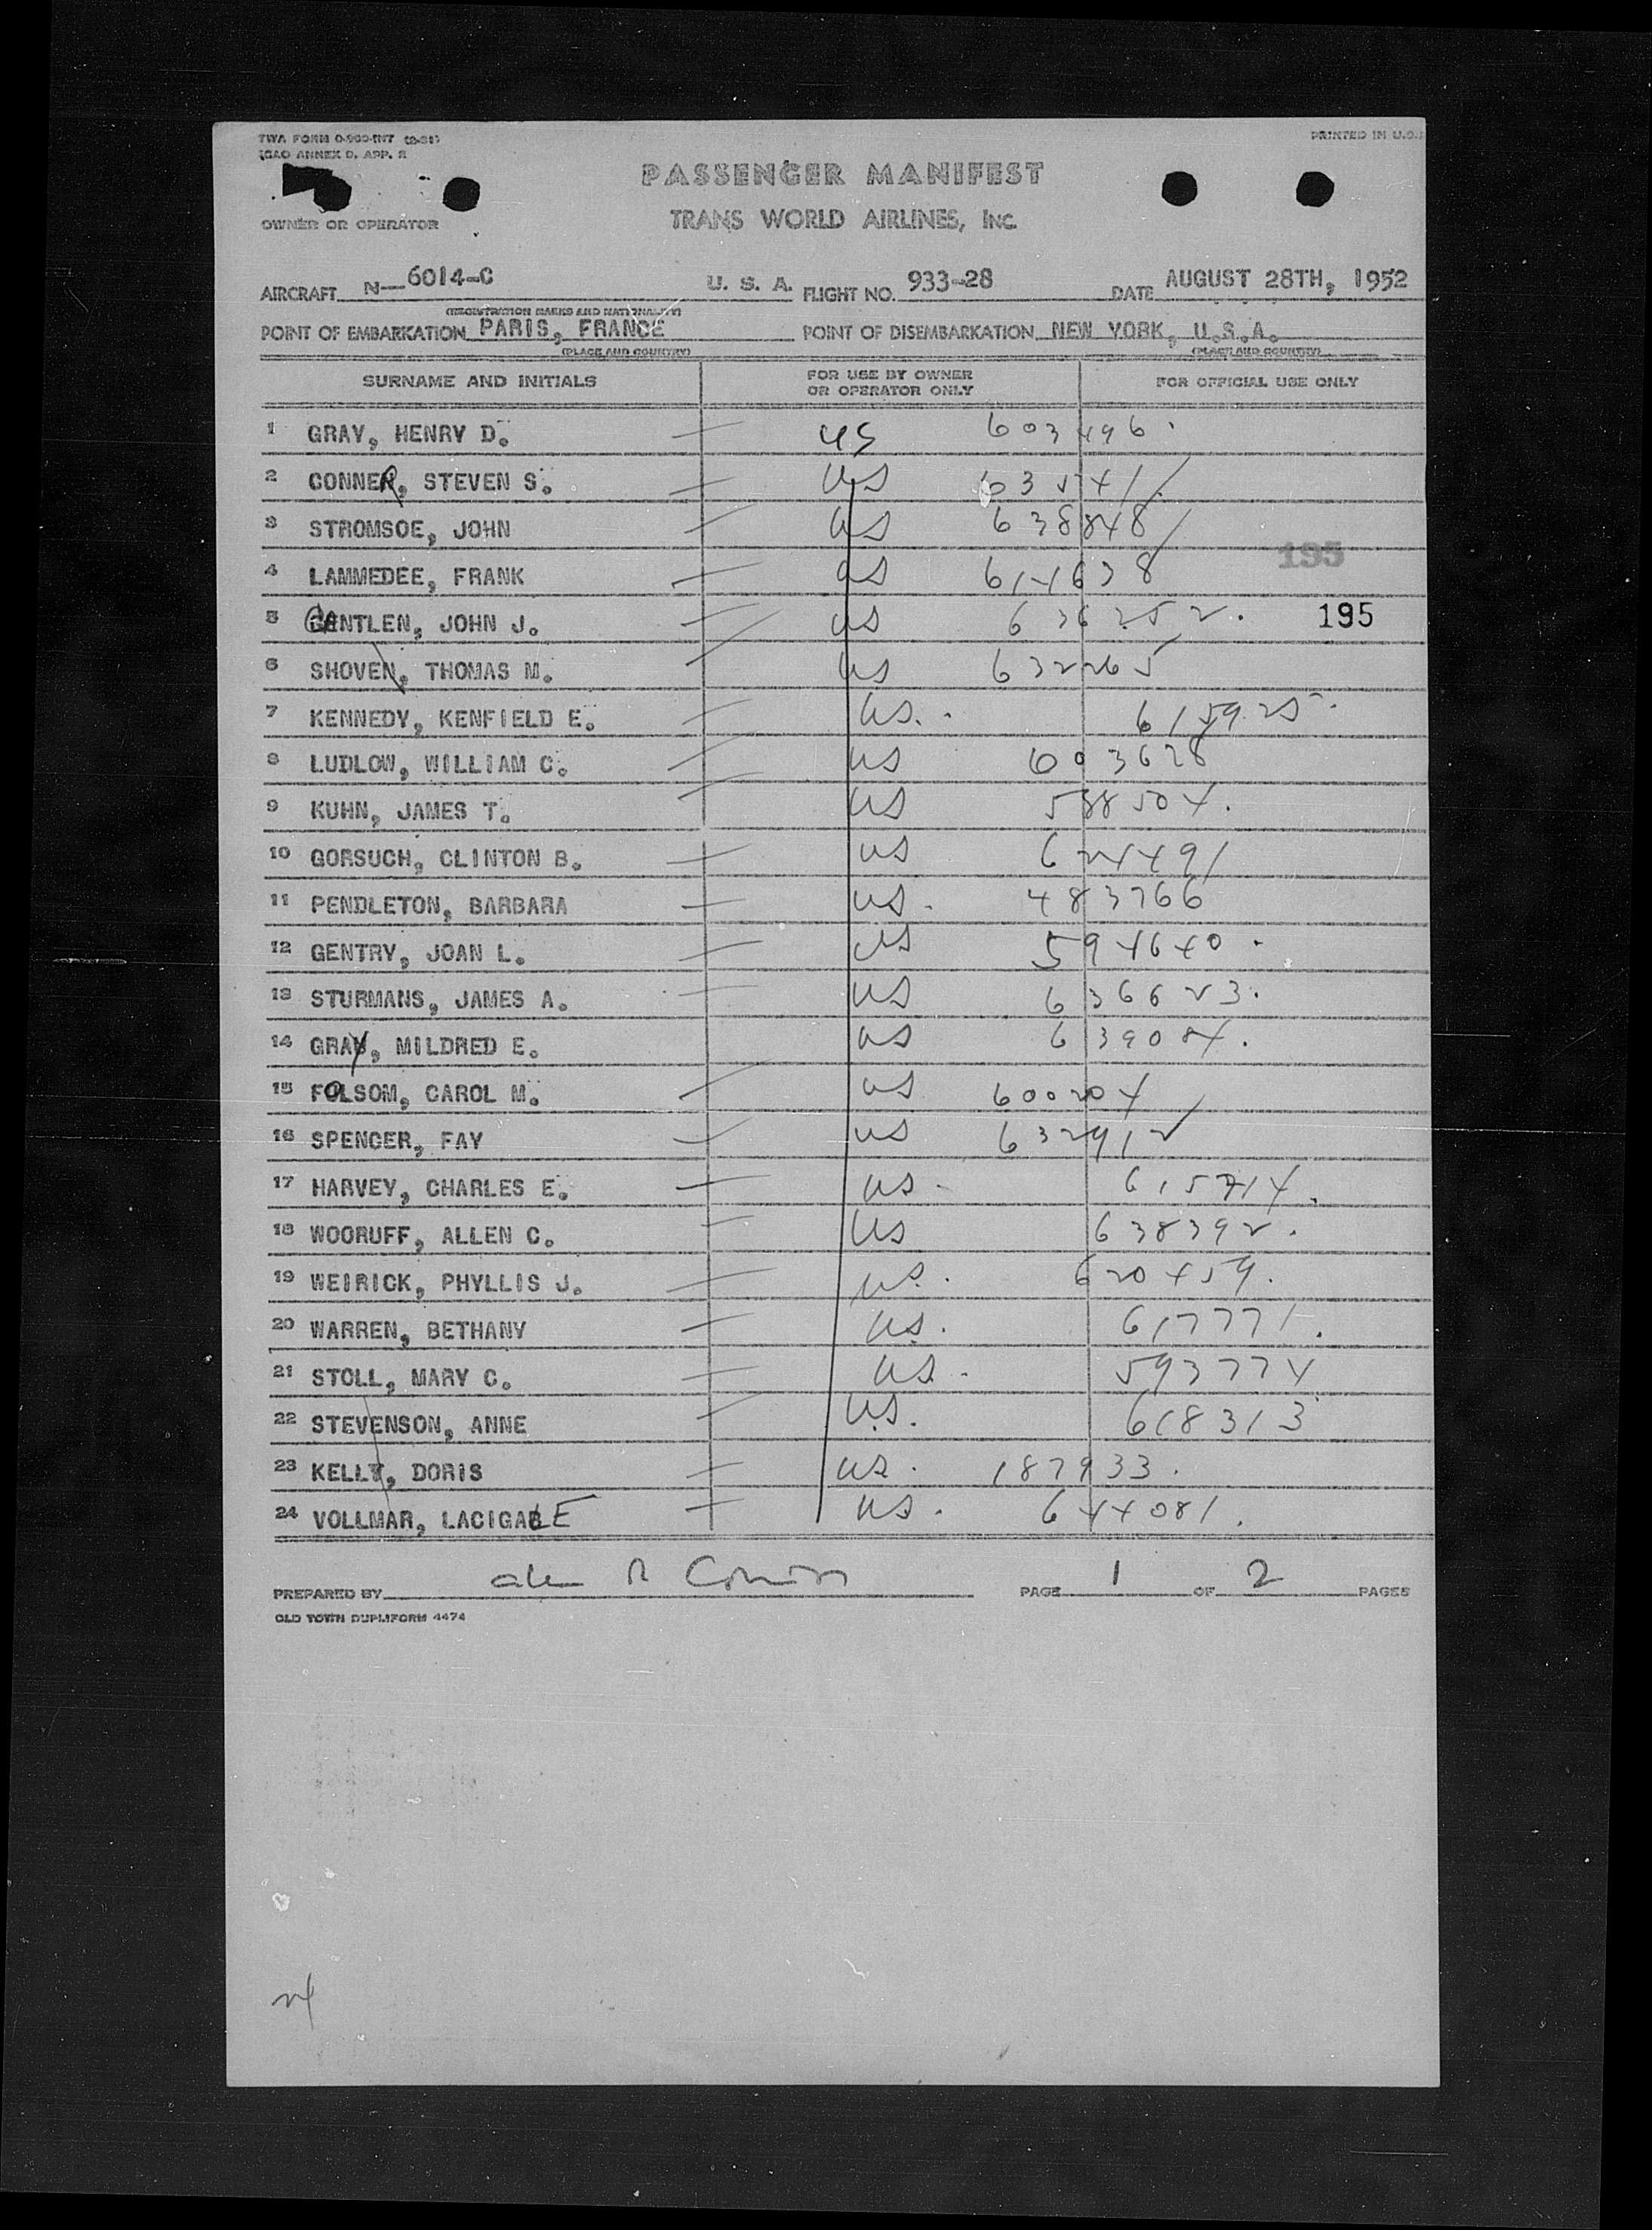 TWA FORM O-900-INT (2-51)
ICAO ANNEX 9, APP. 2
PRINTED IN U.S.
PASSENGER MANIFEST
OWNER OR OPERATOR
TRANS WORLD AIRLINES, INC.
AIRCRAFT N-6014-C U. S. A. FLIGHT NO. 933-28 DATE AUGUST 28TH, 1952
(REGISTRATION MARKS AND NATIONALITY)
POINT OF EMBARKATION PARIS, FRANCE POINT OF DISEMBARKATION NEW YORK, U.S.A.
(PLACE AND COUNTRY) (PLACE AND COUNTRY)
SURNAME AND INITIALS FOR USE BY OWNER OR OPERATOR ONLY FOR OFFICIAL USE ONLY
1 GRAY, HENRY D. US 603496.
2 CONNER, STEVEN S. US
3 STROMSOE, JOHN US 638848
195
4 LAMMEDEE, FRANK US 614638
5 GANTLEN, JOHN J. US 636252. 195
6 SHOVEN, THOMAS M. US 632265
7 KENNEDY, KENFIELD E. US. 615925.
8 LUDLOW, WILLIAM C. US 603628
9 KUHN, JAMES T. US 588504.
10 GORSUCH, CLINTON B. US 624491
11 PENDLETON, BARBARA US. 483766
12 GENTRY, JOAN L. US 594640.
13 STURMANS, JAMES A. US 636623.
14 GRAY, MILDRED E. US 639084.
15 FOLSOM, CAROL M. US 600204
16 SPENCER, FAY US 632912
17 HARVEY, CHARLES E. US. 615714.
18 WOORUFF, ALLEN C. US 638392.
19 WEIRICK, PHYLLIS J. US. 620459.
20 WARREN, BETHANY US. 617771.
21 STOLL, MARY C. US. 593774
22 STEVENSON, ANNE US. 618313
23 KELLY, DORIS US. 187933.
24 VOLLMAR, LACIGALE US. 644081.
PREPARED BY PAGE 1 OF 2 PAGES
OLD TOWN DUPLIFORM 4474
24